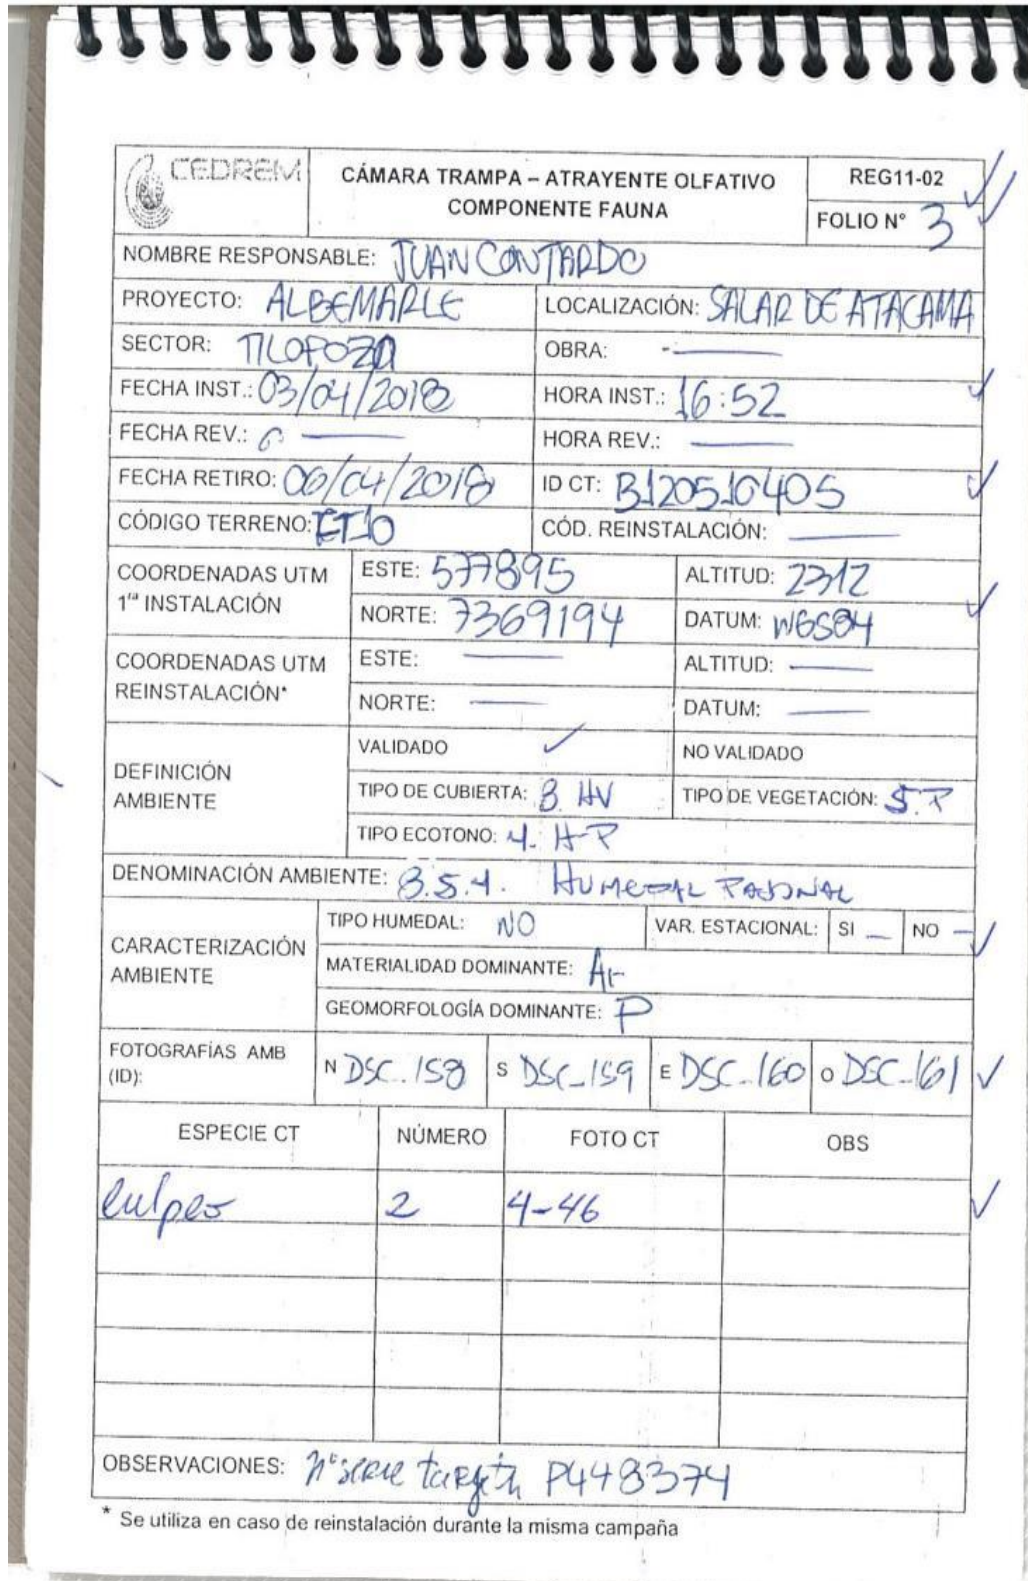 CEDREM
CÁMARA TRAMPA – ATRAYENTE OLFATIVO
COMPONENTE FAUNA
REG11-02
FOLIO N° 3
NOMBRE RESPONSABLE: JUAN CONTARDO
PROYECTO: ALBEMARLE LOCALIZACIÓN: SALAR DE ATACAMA
SECTOR: TILOPOZO OBRA: —
FECHA INST.: 03/04/2018 HORA INST.: 16:52
FECHA REV.: — HORA REV.: —
FECHA RETIRO: 06/04/2018 ID CT: B120510405
CÓDIGO TERRENO: CT10 CÓD. REINSTALACIÓN: —
COORDENADAS UTM
1ra INSTALACIÓN
ESTE: 577895 ALTITUD: 2312
NORTE: 7369194 DATUM: WGS84
COORDENADAS UTM
REINSTALACIÓN*
ESTE: — ALTITUD: —
NORTE: — DATUM: —
DEFINICIÓN
AMBIENTE
VALIDADO ✓ NO VALIDADO
TIPO DE CUBIERTA: 8. HV TIPO DE VEGETACIÓN: 5. P
TIPO ECOTONO: 4. H-P
DENOMINACIÓN AMBIENTE: 8.5.4. HUMEDAL PAJONAL
CARACTERIZACIÓN
AMBIENTE
TIPO HUMEDAL: NO VAR. ESTACIONAL: SI — NO —
MATERIALIDAD DOMINANTE: Ar
GEOMORFOLOGÍA DOMINANTE: P
FOTOGRAFÍAS AMB
(ID):
N DSC_158 S DSC_159 E DSC_160 O DSC_161
ESPECIE CT NÚMERO FOTO CT OBS
culpeo 2 4-46
OBSERVACIONES: n° serie targeta P448374
* Se utiliza en caso de reinstalación durante la misma campaña